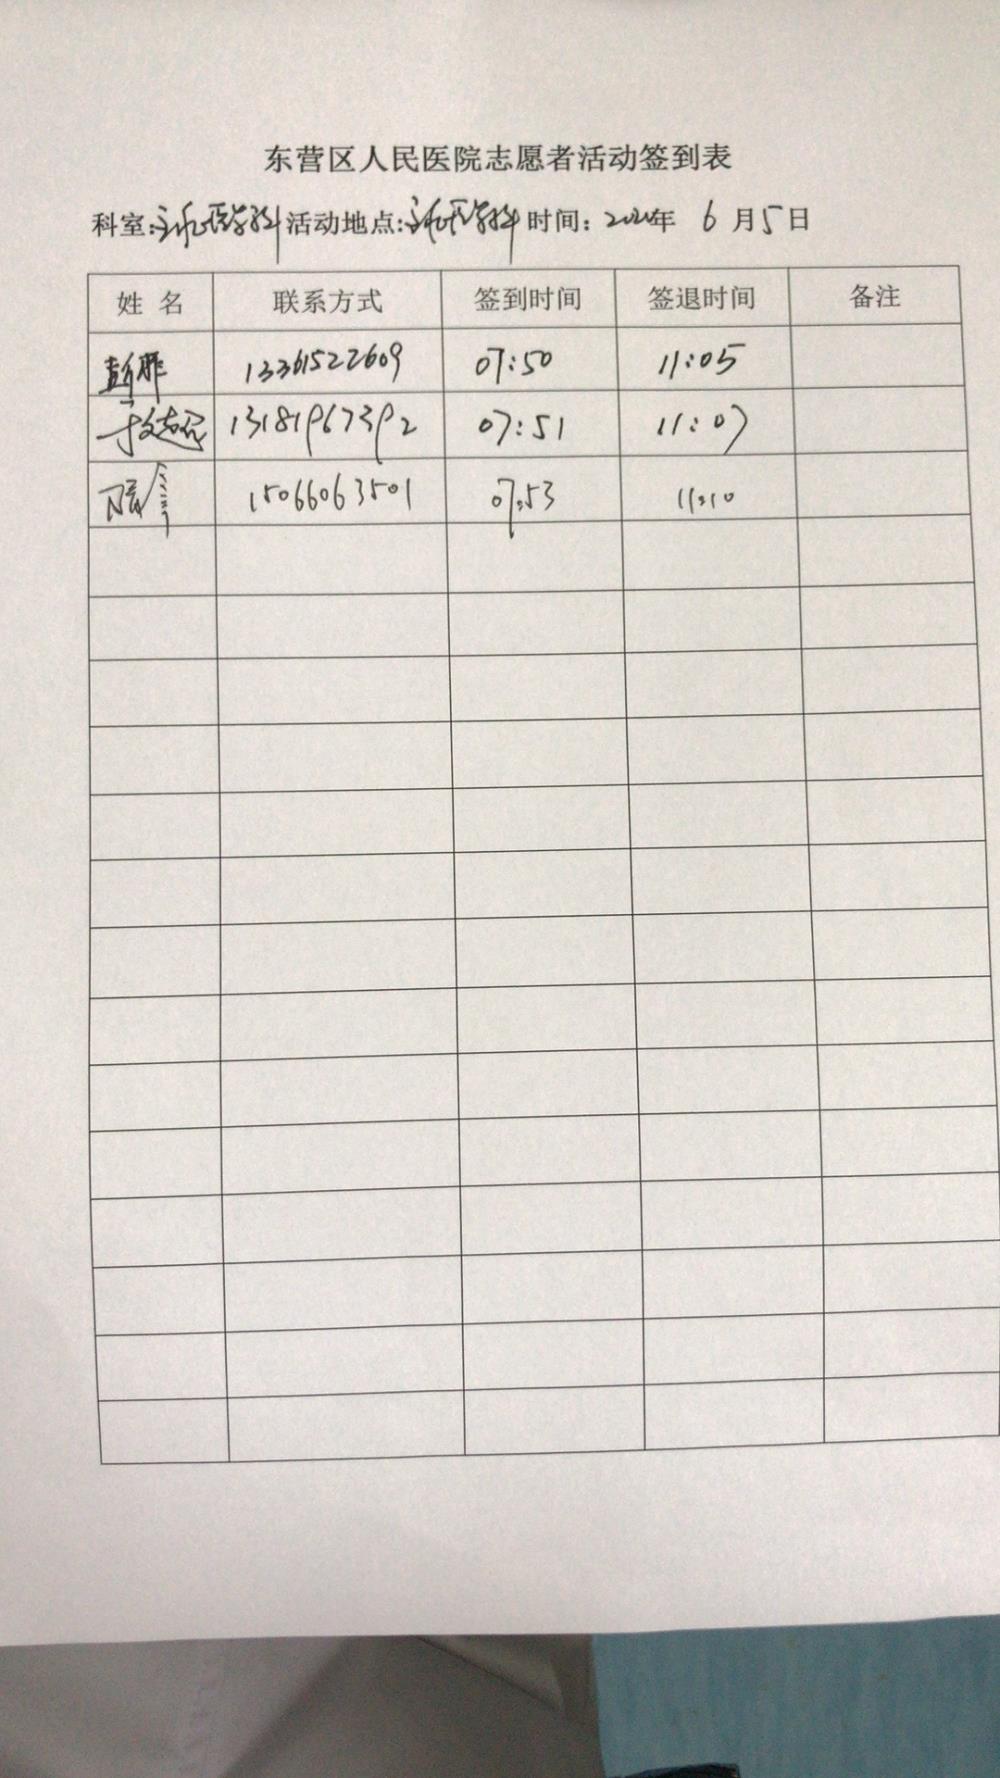 东营区人民医院志愿者活动签到表
科室: 活动地点: 时间: 2020年 6月5日
姓 名 联系方式 签到时间 签退时间 备注
13361522609 07:50 11:05
13181967392 07:51 11:07
15066063501 07:53 11:10